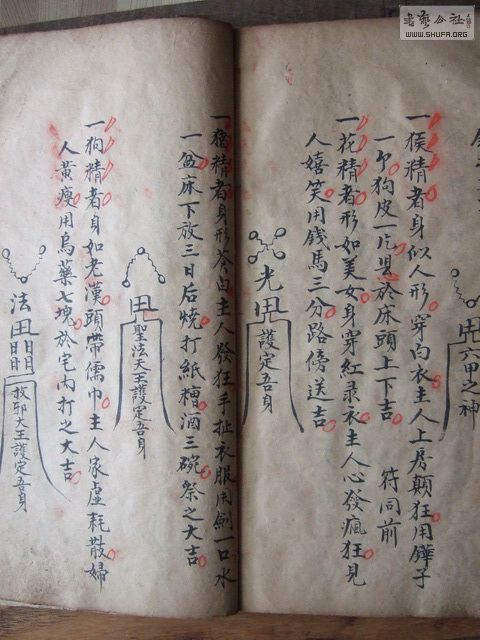 書藝公社
WWW.SHUFA.ORG
六甲之神
一猴精者身似人形穿白衣主人上房顛狂用鏵子
一个狗皮一片是於床頭上下吉 符同前
一花精者形如美女身穿紅录衣主人心發瘋狂見
人嬉笑用錢馬三分路傍送吉
光
護定吾身
一猪精者身形蒼白主人發狂手扯衣服用劍一口水
一盆床下放三日后燒打紙糟酒三碗祭之大吉
聖法天王護定吾身
一狗精者身如老漢頭帶儒巾主人家虛耗散婦
人黃瘦用烏藥七塊於宅內打之大吉
法
救邪大王護定吾身